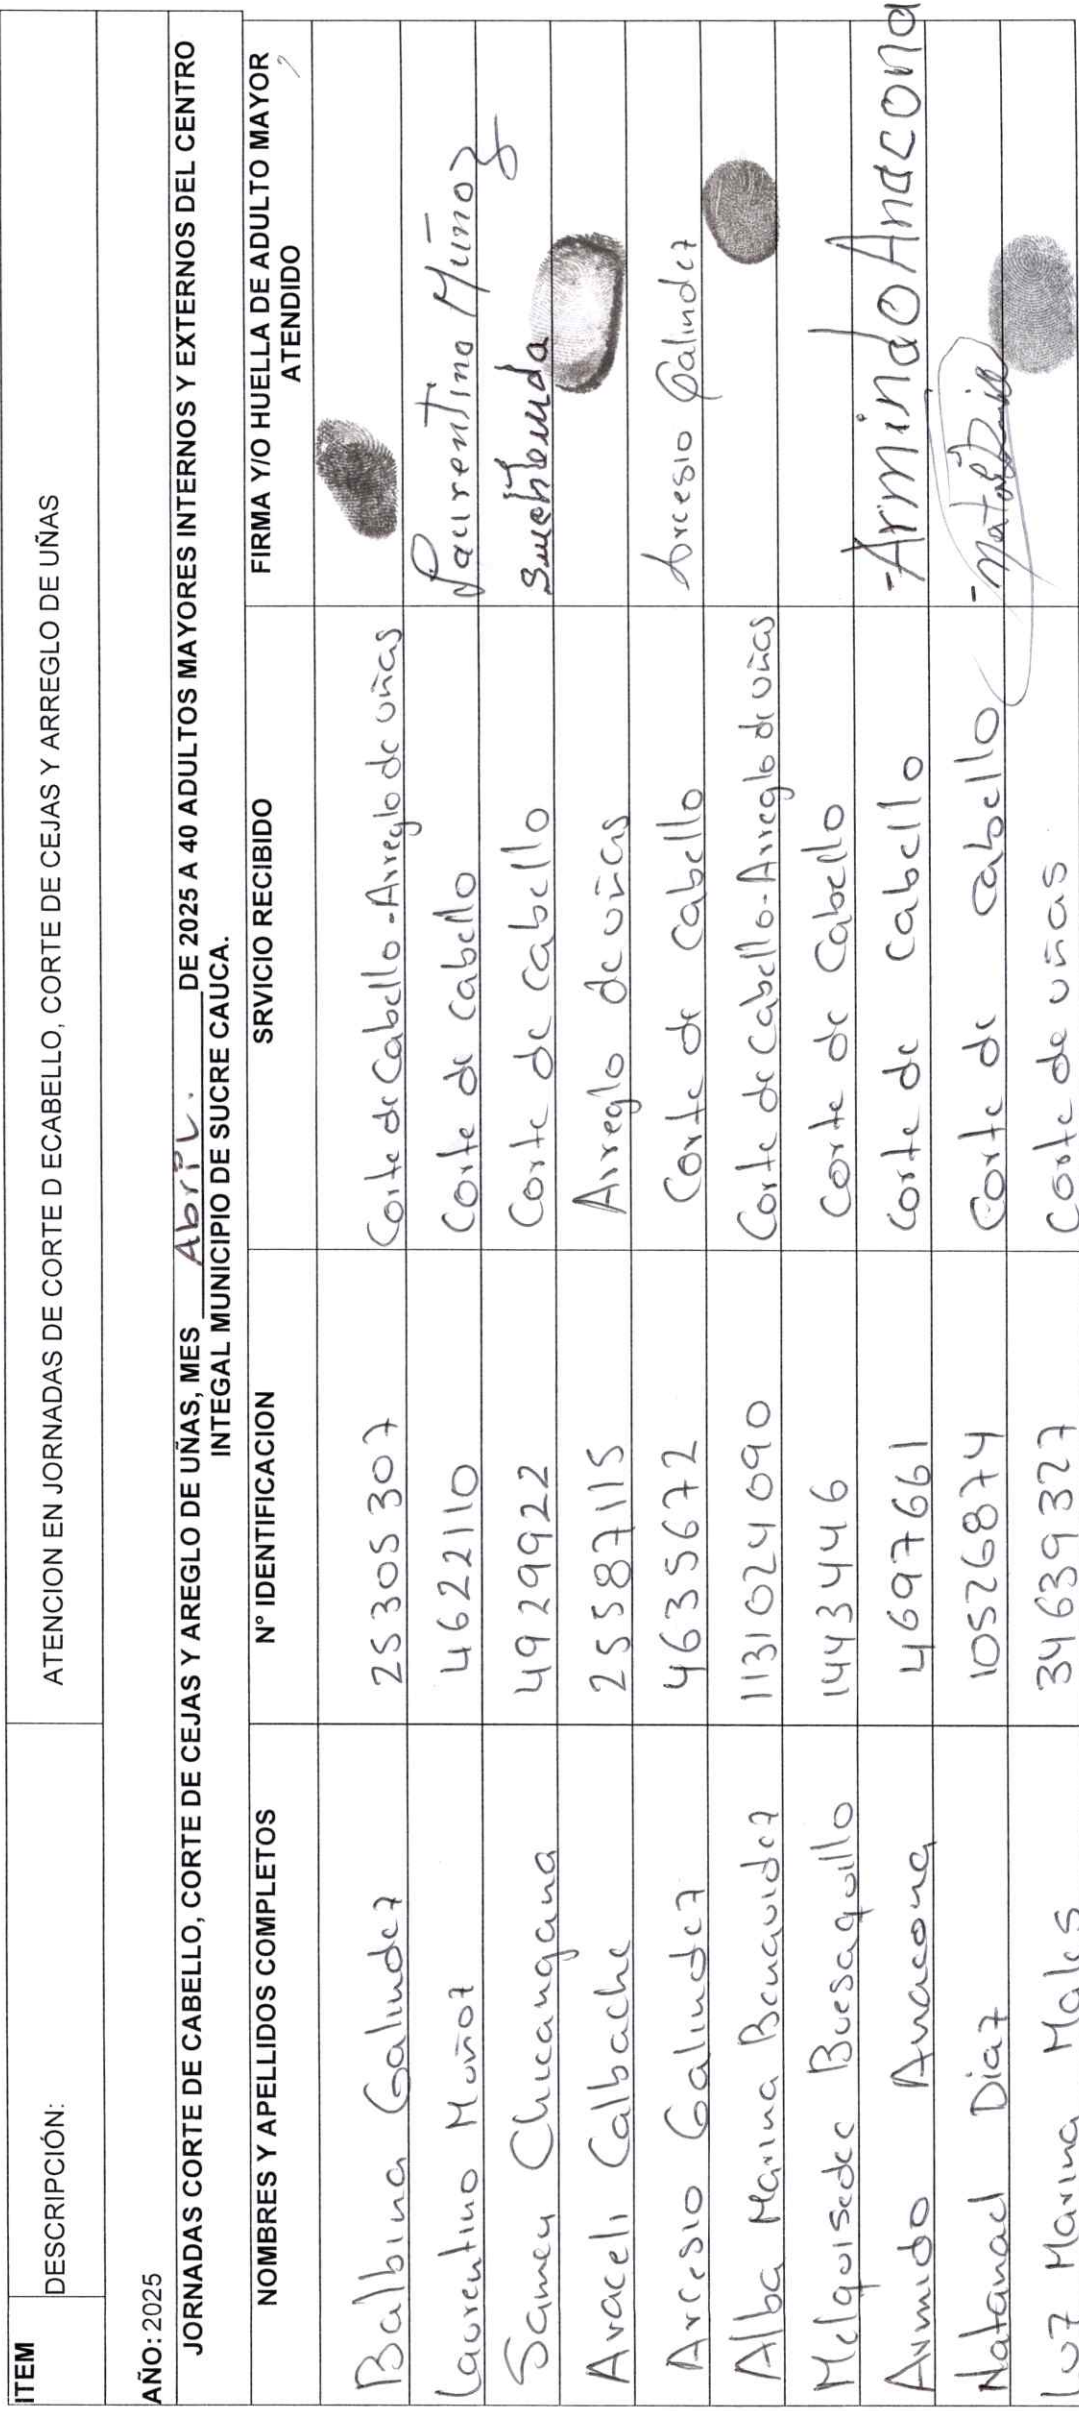 ITEM DESCRIPCIÓN: ATENCION EN JORNADAS DE CORTE D ECABELLO, CORTE DE CEJAS Y ARREGLO DE UÑAS
AÑO: 2025
JORNADAS CORTE DE CABELLO, CORTE DE CEJAS Y AREGLO DE UÑAS, MES Abril. DE 2025 A 40 ADULTOS MAYORES INTERNOS Y EXTERNOS DEL CENTRO
INTEGAL MUNICIPIO DE SUCRE CAUCA.
NOMBRES Y APELLIDOS COMPLETOS N° IDENTIFICACION SRVICIO RECIBIDO FIRMA Y/O HUELLA DE ADULTO MAYOR
ATENDIDO
Balbina Galindez 25305307 Corte de Cabello - Arreglo de uñas
Laurentino Muñoz 4622110 Corte de cabello Laurentino Muñoz
Samey Chicangana 4929922 Corte de cabello
Araceli Calbache 25587115 Arreglo de uñas
Arcesio Galindez 4635672 Corte de cabello Arcesio Galindez
Alba Marina Benavidez 1131024090 Corte de Cabello - Arreglo de uñas
Melquisedec Buesaquillo 1443446 Corte de Cabello
Armido Anacona 4697661 Corte de cabello -Armindo Anacona
Natanael Diaz 10526874 Corte de cabello
Luz Marina Males 34639327 Corte de uñas